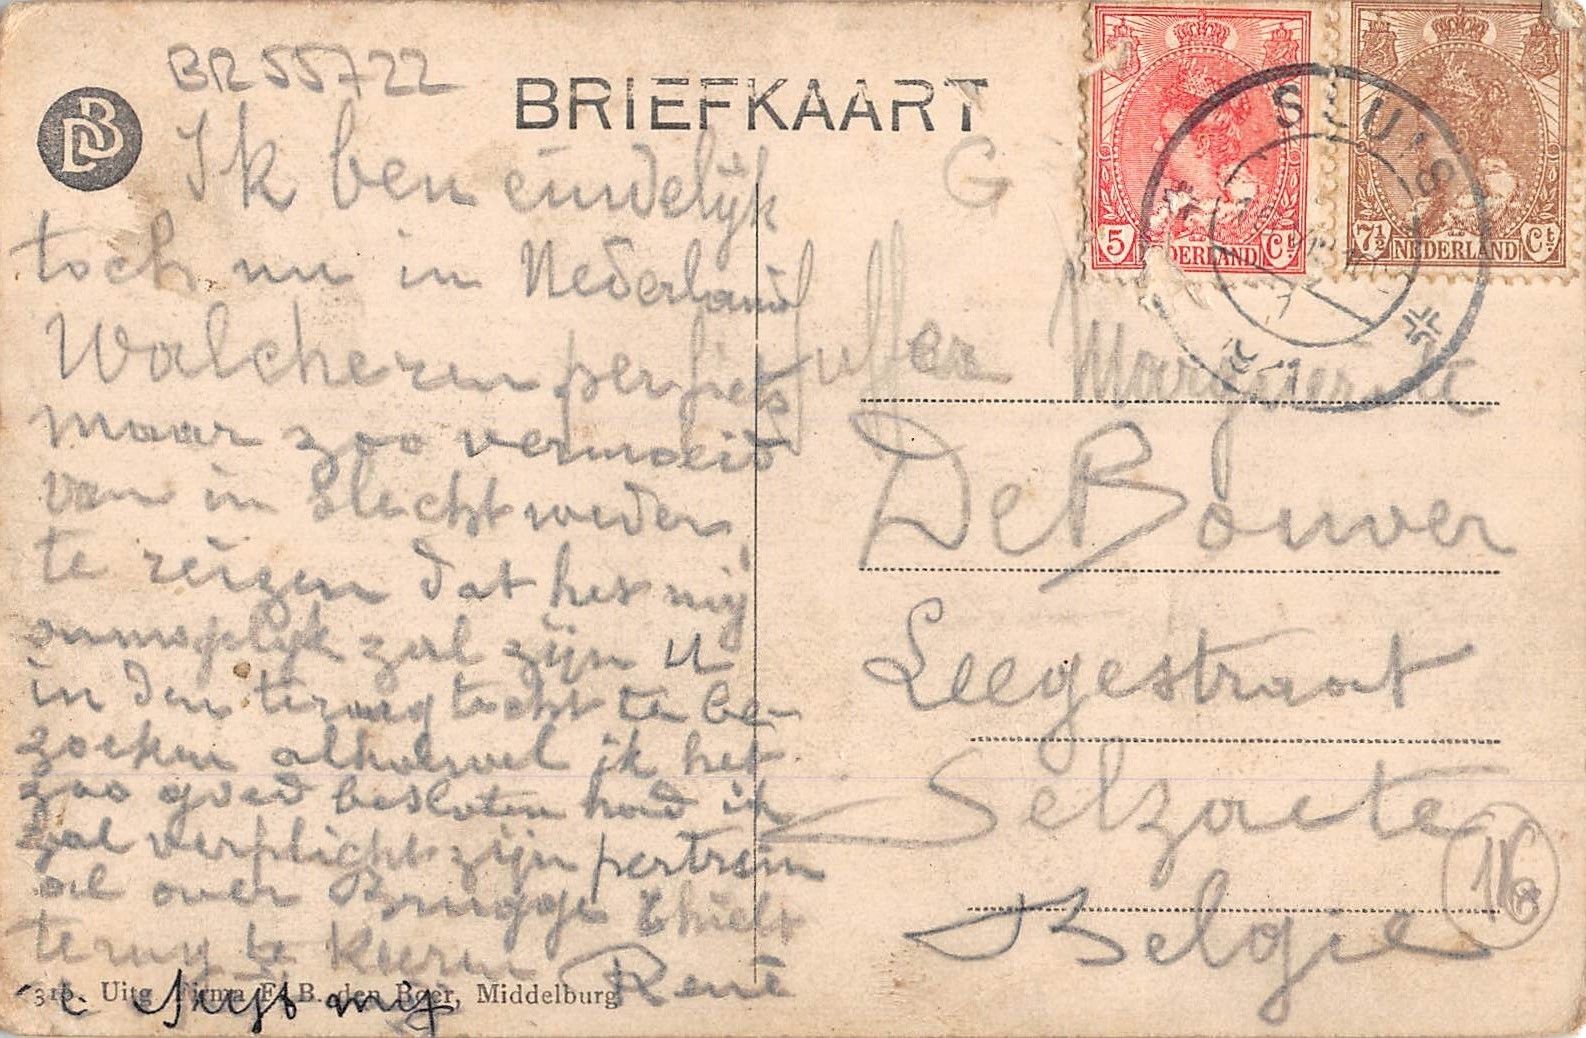 BR55722
DB
BRIEFKAART
G
5 Ct. NEDERLAND
7½ NEDERLAND Ct.
SLUIS
Ik ben eindelijk
toch nu in Nederland
Walcheren per fiets
maar zoo vermoeid
van in slecht weder
te reizen dat het mij
onmogelijk zal zijn U
in den terug tocht te be-
zoeken alhoewel ik het
zoo goed besloten had ik
zal verplicht zijn per trein
al over Brugge Thielt
terug te keeren
René
310. Uitg. Firma F. B. den Boer, Middelburg
Juffer Marguerite
De Bouver
Leegestraat
Selzaete
België